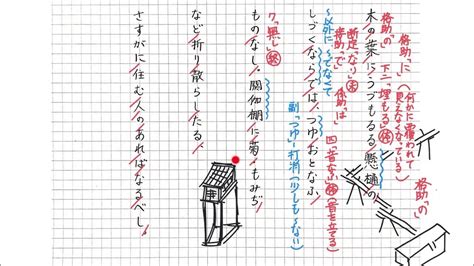 格助「の」
格助「に」
下二「埋もる」体
(何かに覆われて
見えなくなっている)
格助「の」
木の葉にうづもるる懸樋の
断定「なり」未
格助「で」
係助「は」
四「音なふ」体(音を立てる)
～以外に、～でなくて
しづくならでは、つゆおとなふ
副「つゆ」―打消(少しも～ない)
ク「無し」終
ものなし。閼伽棚に菊・もみぢ
など折り散らしたる、
さすがに住む人のあればなるべし。